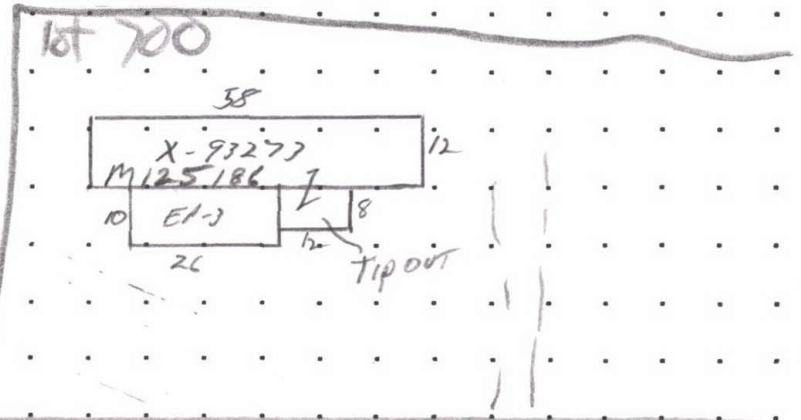 lot 700
58
X-93273
12
M125186
10
EP-3
8
12
26
Tip OUT